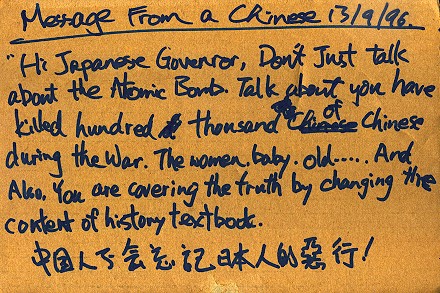 Message From a Chinese 13/9/96.
"Hi Japanese Governor, Don't Just talk
about the Atomic Bomb. Talk about you have
killed hundred thousand of Chinese
during the War. The women. baby. old..... And
Also, You are covering the truth by changing the
content of history textbook.
中国人不会忘记日本人的惡行!